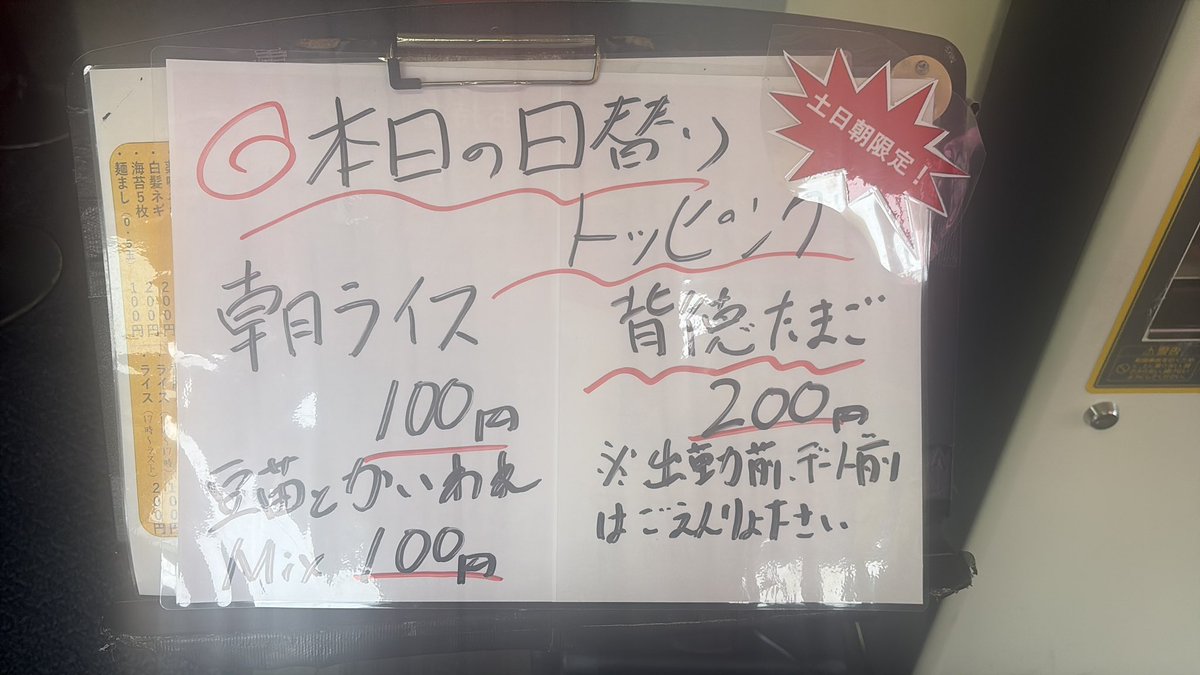 本日の日替り
トッピング
土日朝限定！
朝ライス
100円
豆苗とかいわれ
Mix 100円
背徳たまご
200円
※出勤前、デート前
はごえんりょださい
白髪ネギ 200円
海苔5枚 200円
麺まし（0.5玉） 100円
ライス
ライス（17時〜ラスト） 200円